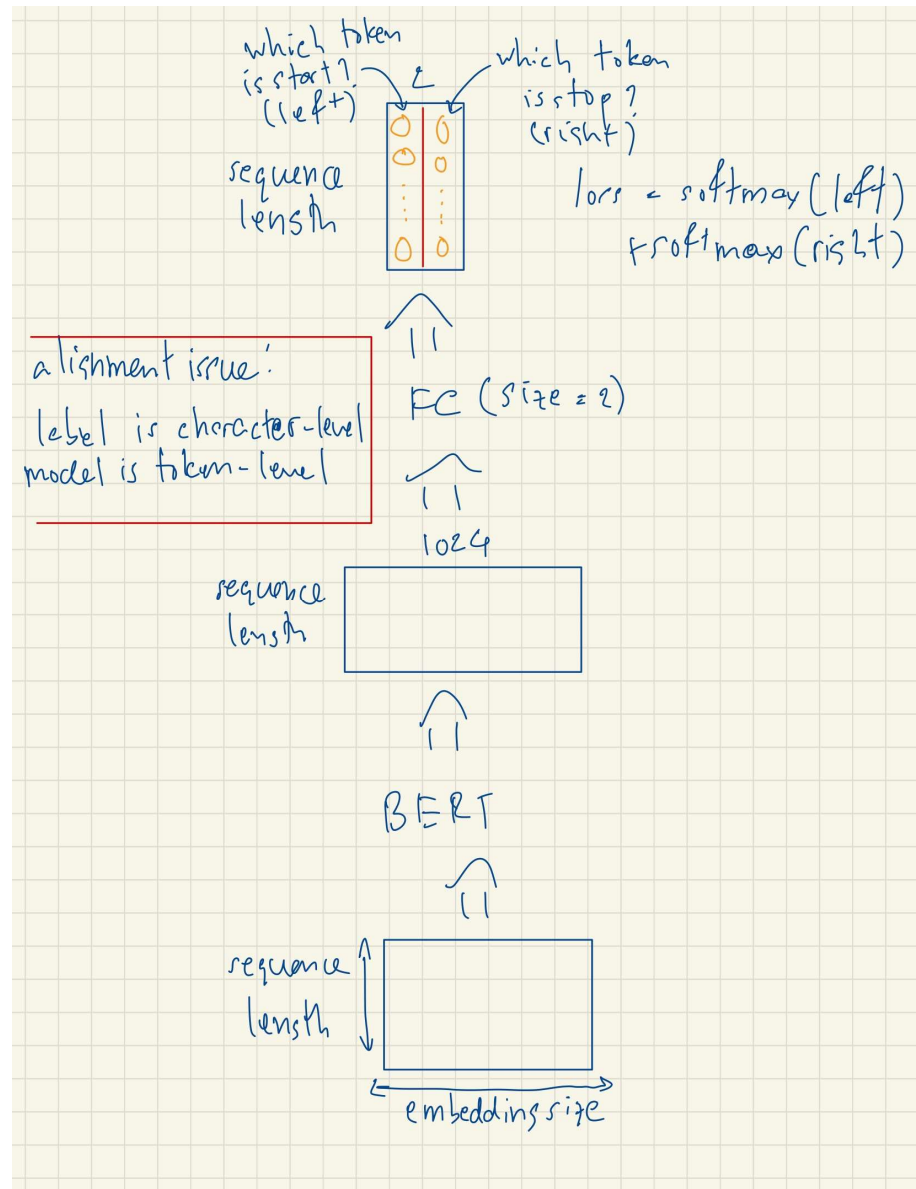 which token
is start?
(left)
2
which token
is stop?
(right)
sequence
length
loss = softmax(left)
+softmax(right)
alignment issue:
label is character-level
model is token-level
FC (size = 2)
1024
sequence
length
BERT
sequence
length
embedding size